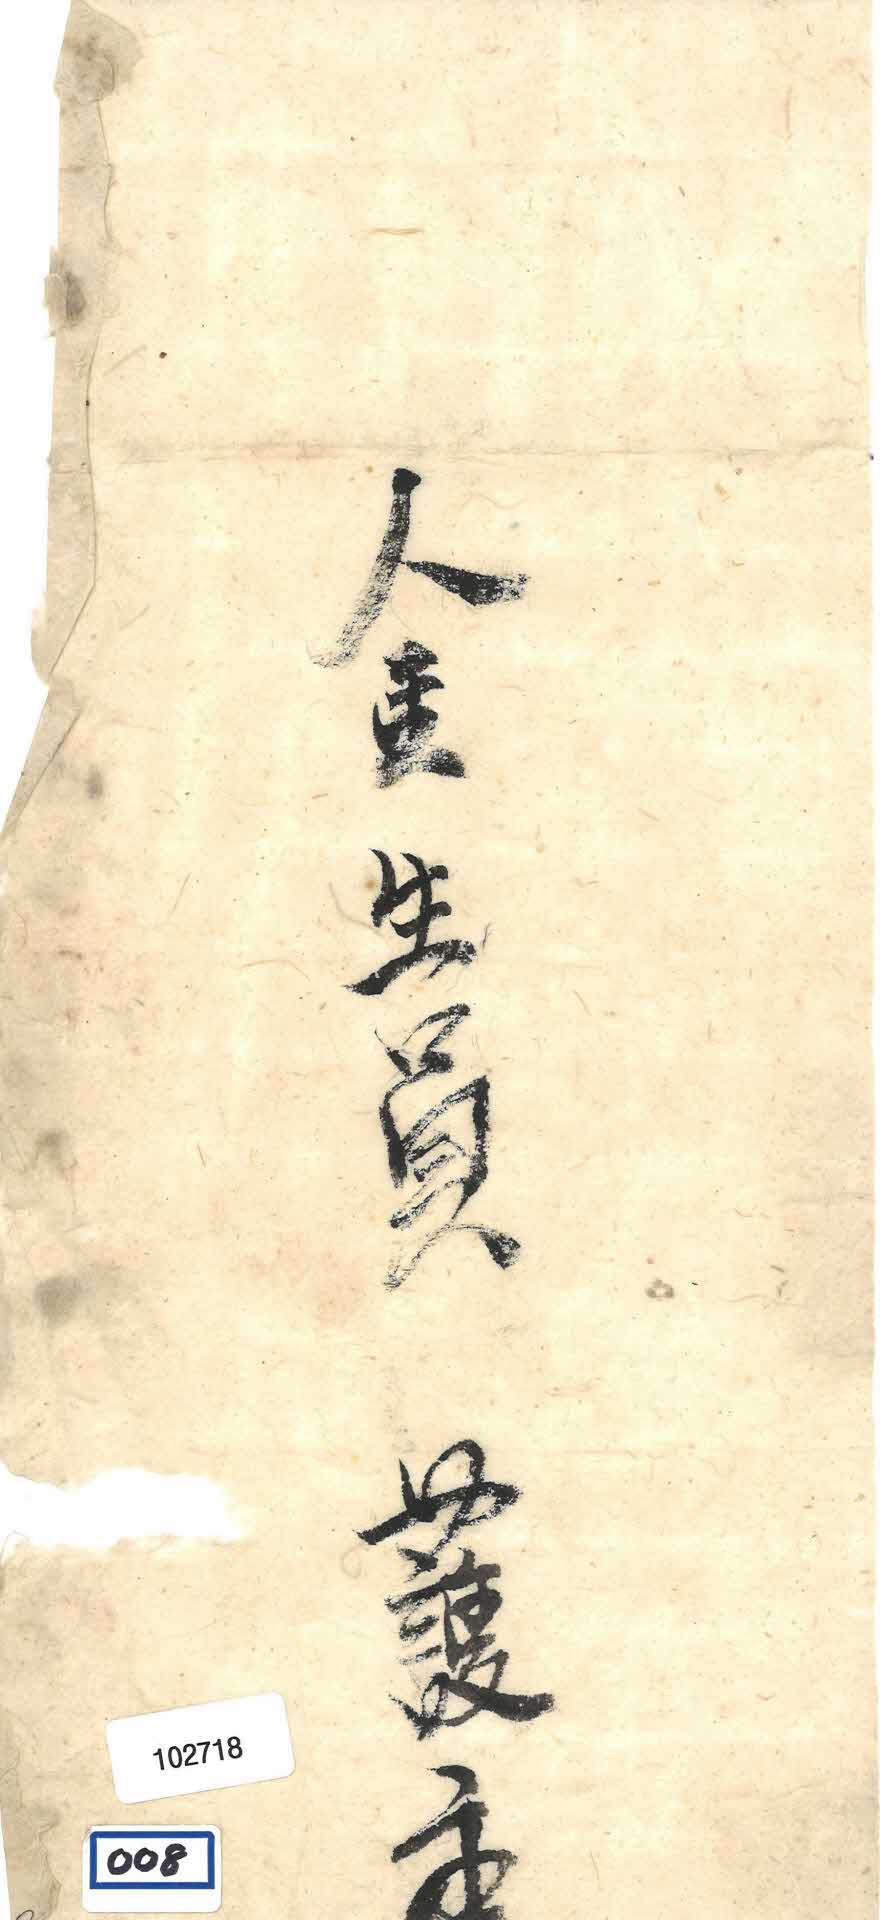 金生員 護
102718
008